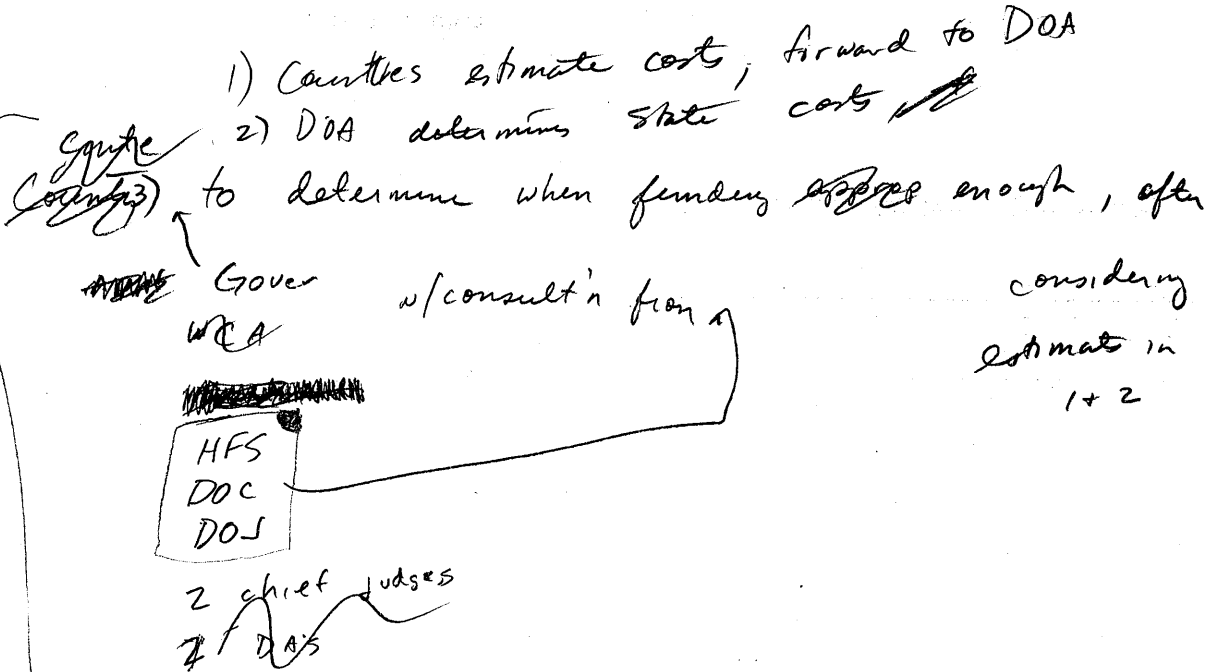 1) Counties estimate costs, forward to DOA
2) DOA determines state costs
3) to determine when funding enough, after
considering
estimates in
1 + 2
Gover w/consult'n from
WCA
HFS
DOC
DOJ
2 chief judges
DA's